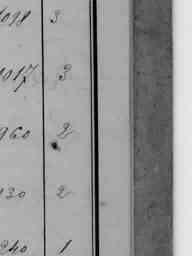 1098 3
1017 3
960 2
130 2
240 1